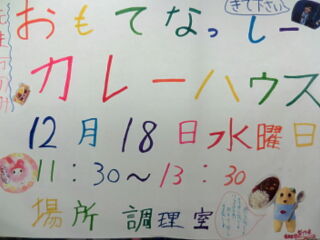 きて下さい
おもてなっしー
カレーハウス
12月18日水曜日
11:30～13:30
場所 調理室